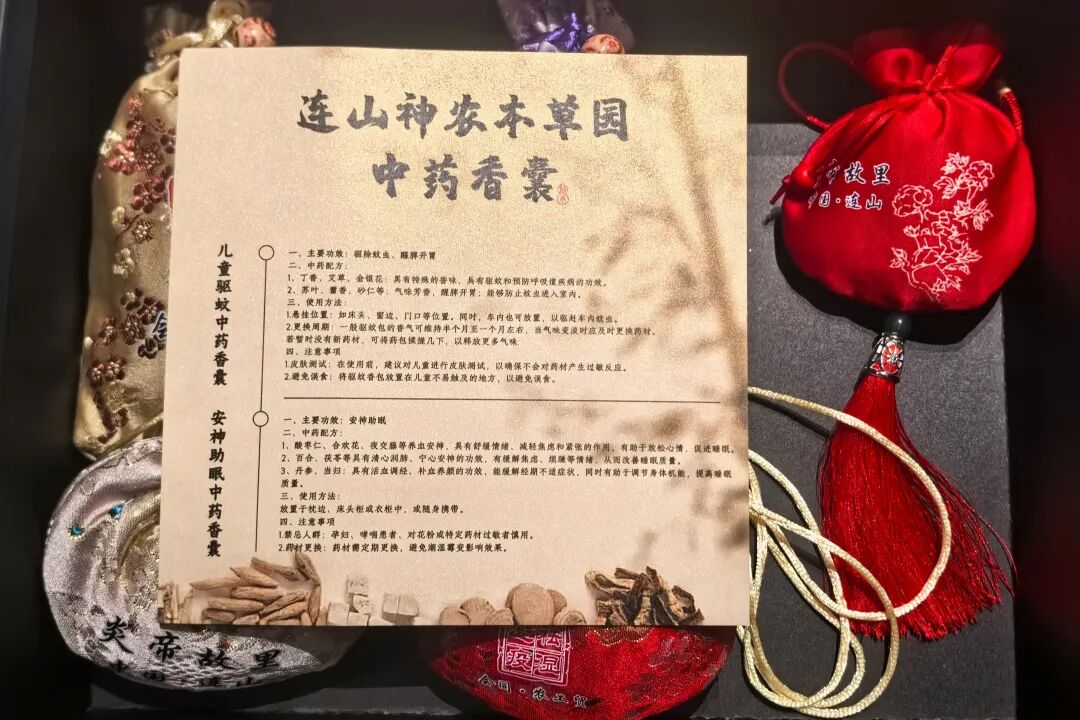 连山神农本草园
中药香囊
儿童驱蚊中药香囊
一、主要功效：驱除蚊虫、醒脾开胃
二、中药配方：
1、丁香、艾草、金银花：具有特殊的香味，具有驱蚊和预防呼吸道疾病的功效。
2、苏叶、藿香、砂仁等：气味芳香，醒脾开胃；能够防止蚊虫进入室内。
三、使用方法：
1.悬挂位置：如床头、窗边、门口等位置。同时，车内也可放置，以驱赶车内蚊虫。
2.更换周期：一般驱蚊包的香气可维持半个月至一个月左右，当气味变淡时应及时更换药材。
若暂时没有新药材，可将药包揉搓几下，以释放更多气味。
四、注意事项
1.皮肤测试：在使用前，建议对儿童进行皮肤测试，以确保不会对药材产生过敏反应。
2.避免误食：将驱蚊香包放置在儿童不易触及的地方，以避免误食。
安神助眠中药香囊
一、主要功效：安神助眠
二、中药配方：
1、酸枣仁、合欢花、夜交藤等养血安神，具有舒缓情绪、减轻焦虑和紧张的作用，有助于放松心情，促进睡眠。
2、百合、茯苓等具有清心润肺、宁心安神的功效，有缓解焦虑、烦躁等情绪，从而改善睡眠质量。
3、丹参、当归：具有活血调经、补血养颜的功效，能缓解经期不适症状，同时有助于调节身体机能，提高睡眠
质量。
三、使用方法：
放置于枕边、床头柜或衣柜中，或随身携带。
四、注意事项
1.禁忌人群：孕妇、哮喘患者、对花粉或特定药材过敏者慎用。
2.药材更换：药材需定期更换，避免潮湿霉变影响效果。
故里
国·连山
炎帝故里
会同·农工贸